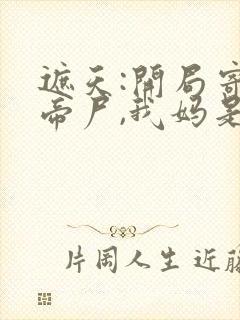 遮天:開局寄
帝尸,我妈是
片岡人生 近藤